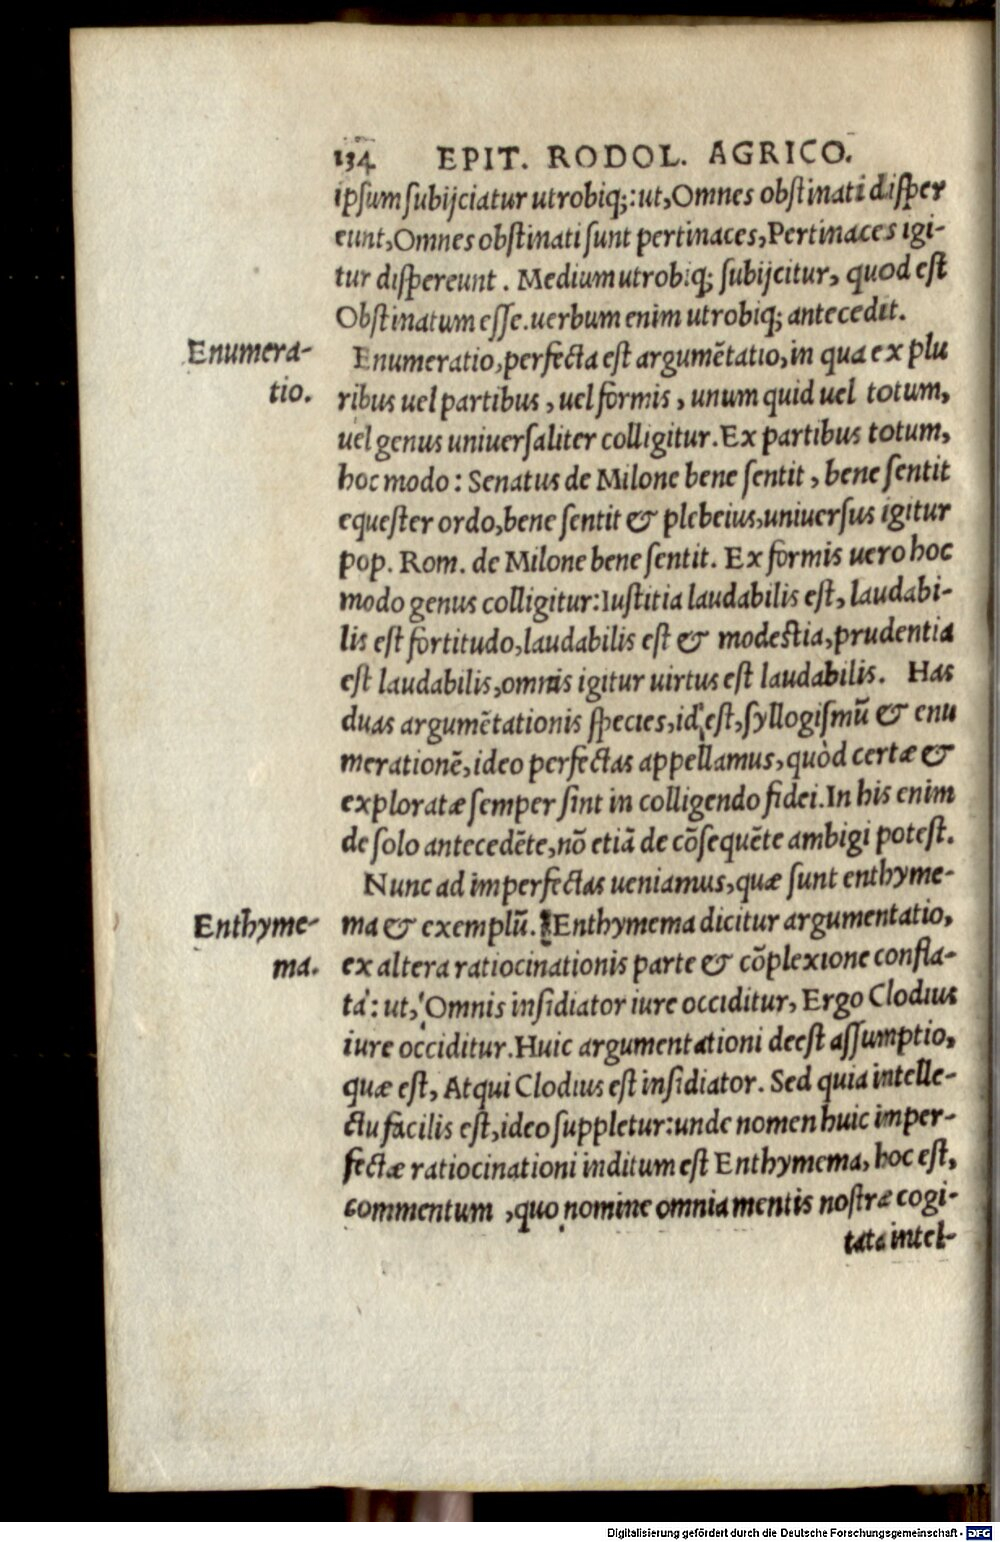 134 EPIT. RODOL. AGRICO.
ipsum subijciatur utrobiq;: ut, Omnes obstinati disper
eunt, Omnes obstinati sunt pertinaces, Pertinaces igi-
tur dispereunt. Medium utrobiq; subijcitur, quod est
Obstinatum esse. uerbum enim utrobiq; antecedit.
Enumera-
tio.
Enumeratio, perfecta est argumētatio, in qua ex plu
ribus uel partibus, uel formis, unum quid uel totum,
uel genus uniuersaliter colligitur. Ex partibus totum,
hoc modo: Senatus de Milone bene sentit, bene sentit
equester ordo, bene sentit & plebeius, uniuersus igitur
pop. Rom. de Milone bene sentit. Ex formis uero hoc
modo genus colligitur: Iustitia laudabilis est, laudabi-
lis est fortitudo, laudabilis est & modestia, prudentia
est laudabilis, omnis igitur uirtus est laudabilis. Has
duas argumētationis species, id est, syllogismū & enu
merationē, ideo perfectas appellamus, quòd certæ &
exploratæ semper sint in colligendo fidei. In his enim
de solo antecedēte, nō etiā de cōsequēte ambigi potest.
Nunc ad imperfectas ueniamus, quæ sunt enthyme-
Enthyme-
ma.
ma & exemplū. Enthymema dicitur argumentatio,
ex altera ratiocinationis parte & cōplexione confla-
ta: ut, Omnis insidiator iure occiditur, Ergo Clodius
iure occiditur. Huic argumentationi deest assumptio,
quæ est, Atqui Clodius est insidiator. Sed quia intelle-
ctu facilis est, ideo suppletur: unde nomen huic imper-
fectæ ratiocinationi inditum est Enthymema, hoc est,
commentum, quo nomine omnia mentis nostræ cogi-
tata intel-
Digitalisierung gefördert durch die Deutsche Forschungsgemeinschaft - DFG